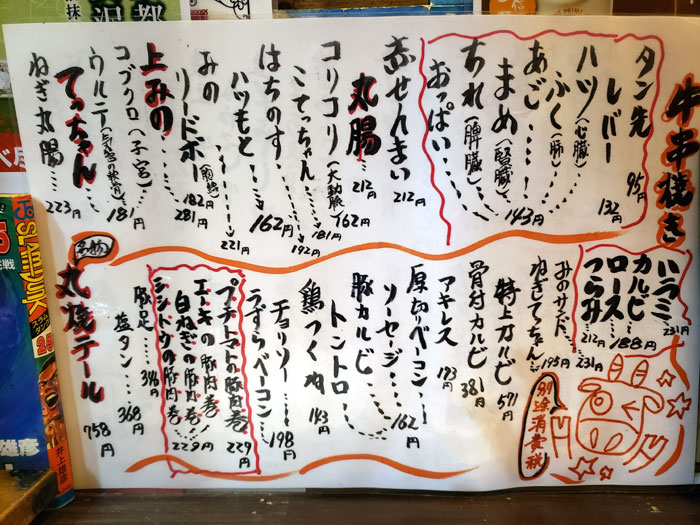 牛串焼き
タン先 95円
レバー 132円
ハツ(心臓)
ふく(肺)
あごし
まめ(腎臓) 143円
ちれ(脾臓)
おっぱい
赤せんまい 212円
丸腸 212円
コリコリ(大動脈) 162円
こてっちゃん 181円 192円
はちのす 162円
ハツもと 221円
みの
リードボー(胸腺) 182円
上みの 281円
コブクロ(子宮) 181円
ウルテ
てっちゃん
ねぎ丸腸 223円
ハラミ 231円
カルビ
ロース 188円
つらみ 212円
みのサンド 231円
ねぎしてっちゃん 195円
特上カルビ 591円
骨付カルビ 381円
アキレス 173円
厚切りベーコン
ソーセージ 162円
豚カルビ
トントロ
鶏つくね 143円
チョリソー 198円
うずらベーコン
プチトマトの豚肉巻 229円
エノキの豚肉巻
白ねぎの豚肉巻 229円
シシトウの豚肉巻
豚足 346円
塩タン 368円
名物
丸焼テール 758円
別途消費税
SLAM DUNK
井上雄彦
雄彦